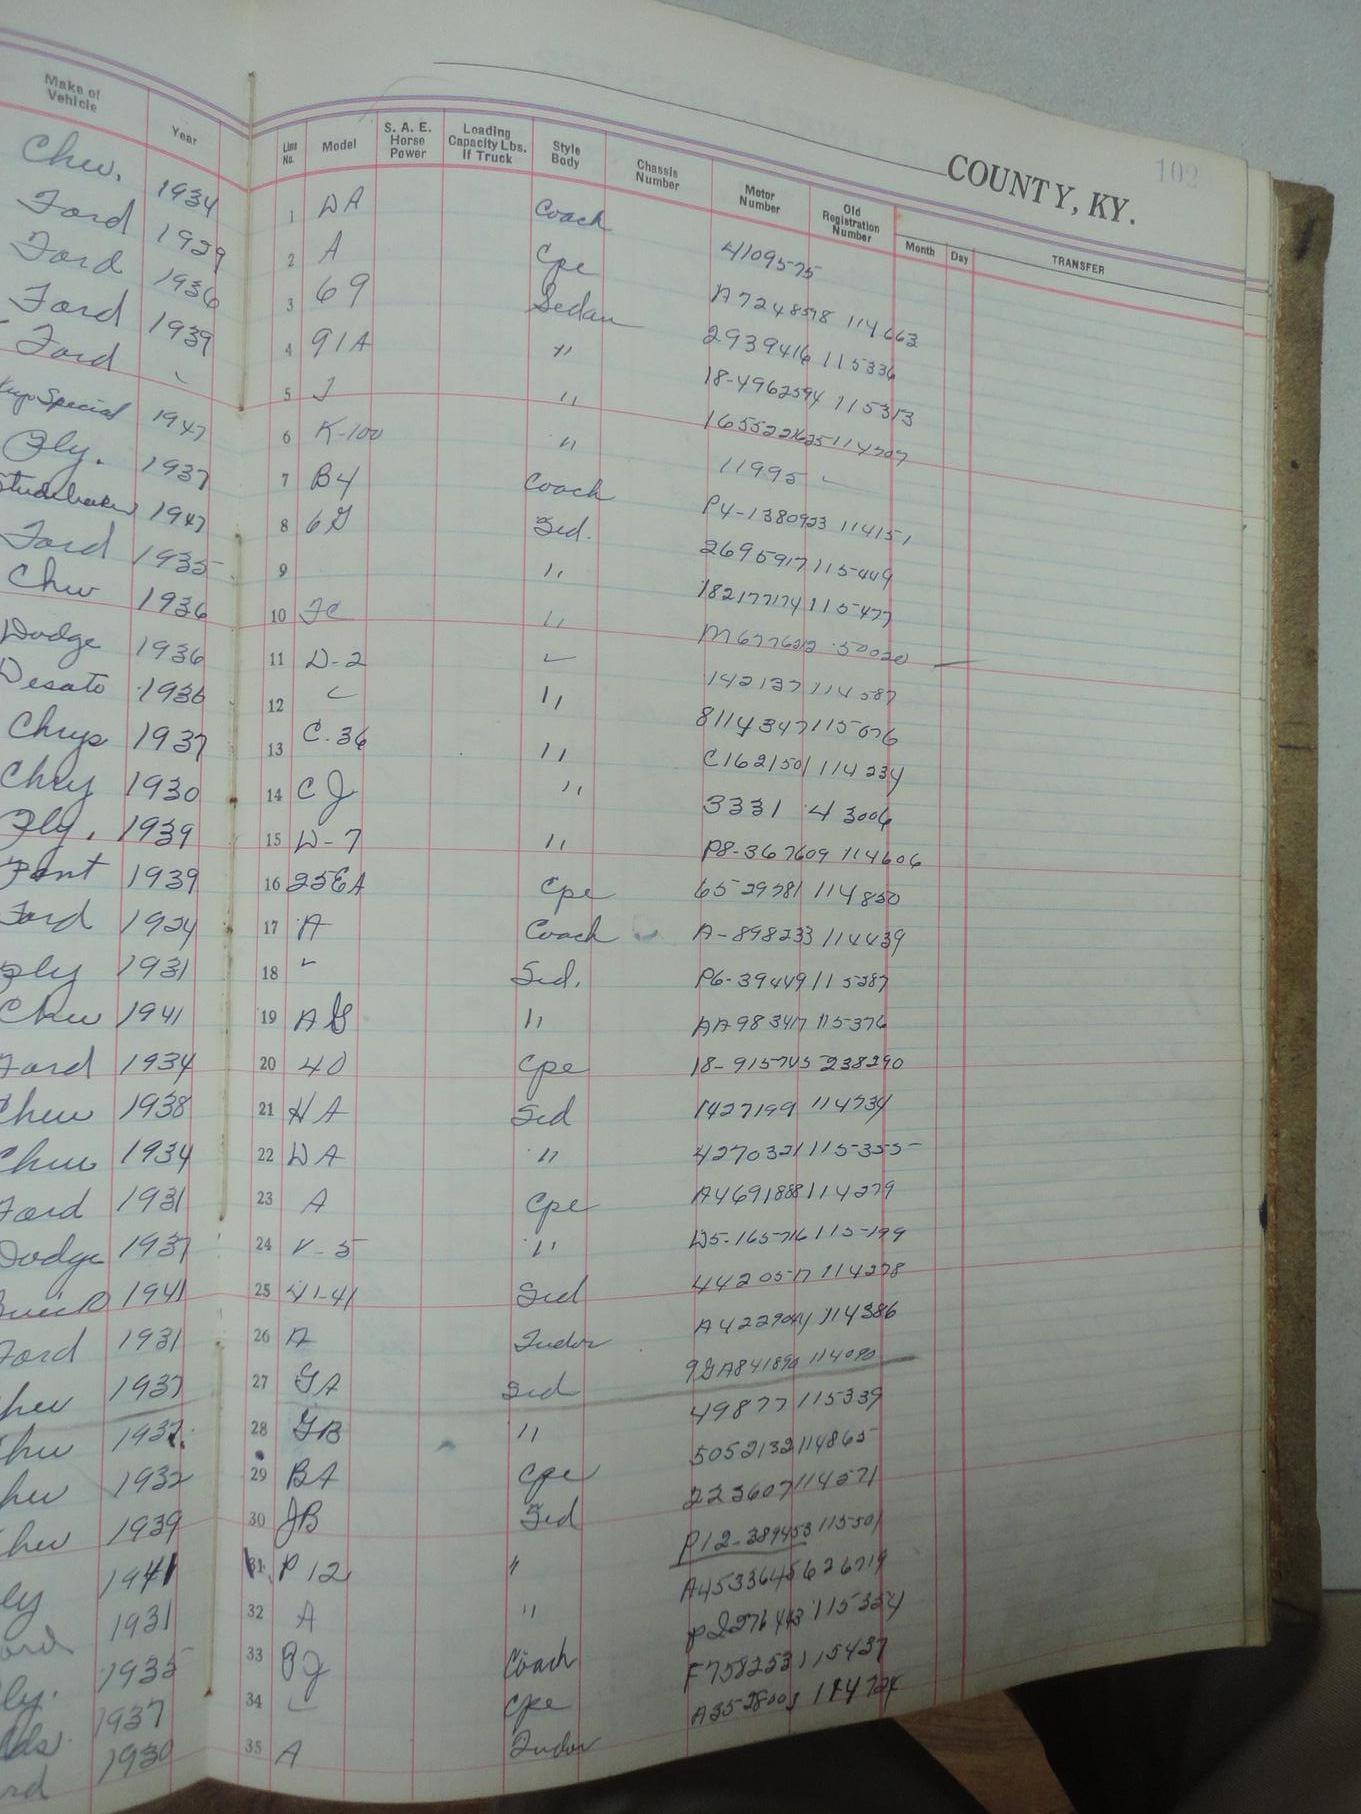 COUNTY, KY.
102
Make of Vehicle Year Line No. Model S. A. E. Horse Power Loading Capacity Lbs. If Truck Style Body Chassis Number Motor Number Old Registration Number Month Day TRANSFER
Chev. 1934 1 DA Coach 4109575
Ford 1929 2 A Cpe A7248578 114663
Ford 1936 3 69 Sedan 2939416 115336
Ford 1939 4 91A " 18-4962594 115313
Ford 5 J "
Special 1947 6 K-100 " 11995
Ply. 1937 7 B4 Coach P4-1380923 114151
Studebaker 1947 8 6G Sed. 2695917 115449
Ford 1935 9 " 182177174 115477
Chev 1936 10 FC " M677622 50020
Dodge 1936 11 D-2 ✓ 142137 114587
Desato 1936 12 ✓ " 8114347 115076
Chrys 1937 13 C.36 " C162150 114234
Chry 1930 14 CJ " 3331 43006
Ply. 1939 15 D-7 " P8-367609 114606
Pont 1939 16 25EA Cpe 6529781 114850
Ford 1924 17 A Coach A-898233 114439
Ply 1931 18 ✓ Sed. P6-39449 115287
Chev 1941 19 AG " AA983417 115376
Ford 1934 20 40 Cpe 18-915745 238290
Chev 1938 21 HA Sed 1427199 114734
Chev 1934 22 DA " 4270321 115355
Ford 1931 23 A Cpe A4691888 114279
Dodge 1937 24 V-5 " D5-165716 115199
Buick 1941 25 41-41 Sed 4420517 114278
Ford 1931 26 A Tudor 114386
Chev 1937 27 GA Sed 9GA841890 114090
Chev 1937. 28 GB " 49877 115339
Chev 1932 29 BA Cpe 5052132 114865
Chev 1939 30 JB Sed 223607 114571
Ply 1941 31 P12 " P12-389453 115501
Ford 1931 32 A " A4533645 626719
Ply. 1935 33 PJ Coach P2276443 115354
Olds. 1937 34 Cpe F758253 115437
Ford 1930 35 A Tudor 114724